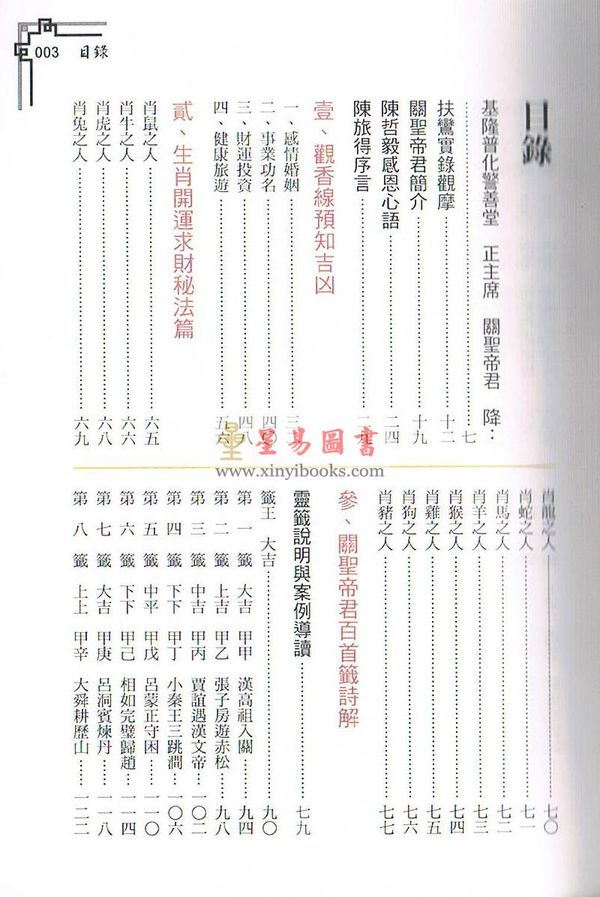 003 目錄
目錄
基隆普化警善堂 正主席 關聖帝君 降：
……七
扶鸞實錄觀摩……十二
關聖帝君簡介……十九
陳哲毅感恩心語……二四
陳旅得序言……
壹、觀香線預知吉凶
一、感情婚姻……
二、事業功名……
三、財運投資……四八
四、健康旅遊……五六
貳、生肖開運求財秘法篇
肖鼠之人……六五
肖牛之人……六六
肖虎之人……六八
肖兔之人……六九
星易圖書
www.xinyibooks.com
肖龍之人……七〇
肖蛇之人……七一
肖馬之人……七二
肖羊之人……七三
肖猴之人……七四
肖雞之人……七五
肖狗之人……七六
肖豬之人……七七
參、關聖帝君百首籤詩解
靈籤說明與案例導讀……七九
籤王 大吉……九〇
第一籤 大吉 甲甲 漢高祖入關……九四
第二籤 上吉 甲乙 張子房遊赤松……九八
第三籤 中吉 甲丙 賈誼遇漢文帝……一〇二
第四籤 下下 甲丁 小秦王三跳澗……一〇六
第五籤 中平 甲戊 呂蒙正守困……一一〇
第六籤 下下 甲己 相如完璧歸趙……一一四
第七籤 大吉 甲庚 呂洞賓煉丹……一一八
第八籤 上上 甲辛 大舜耕歷山……一二二